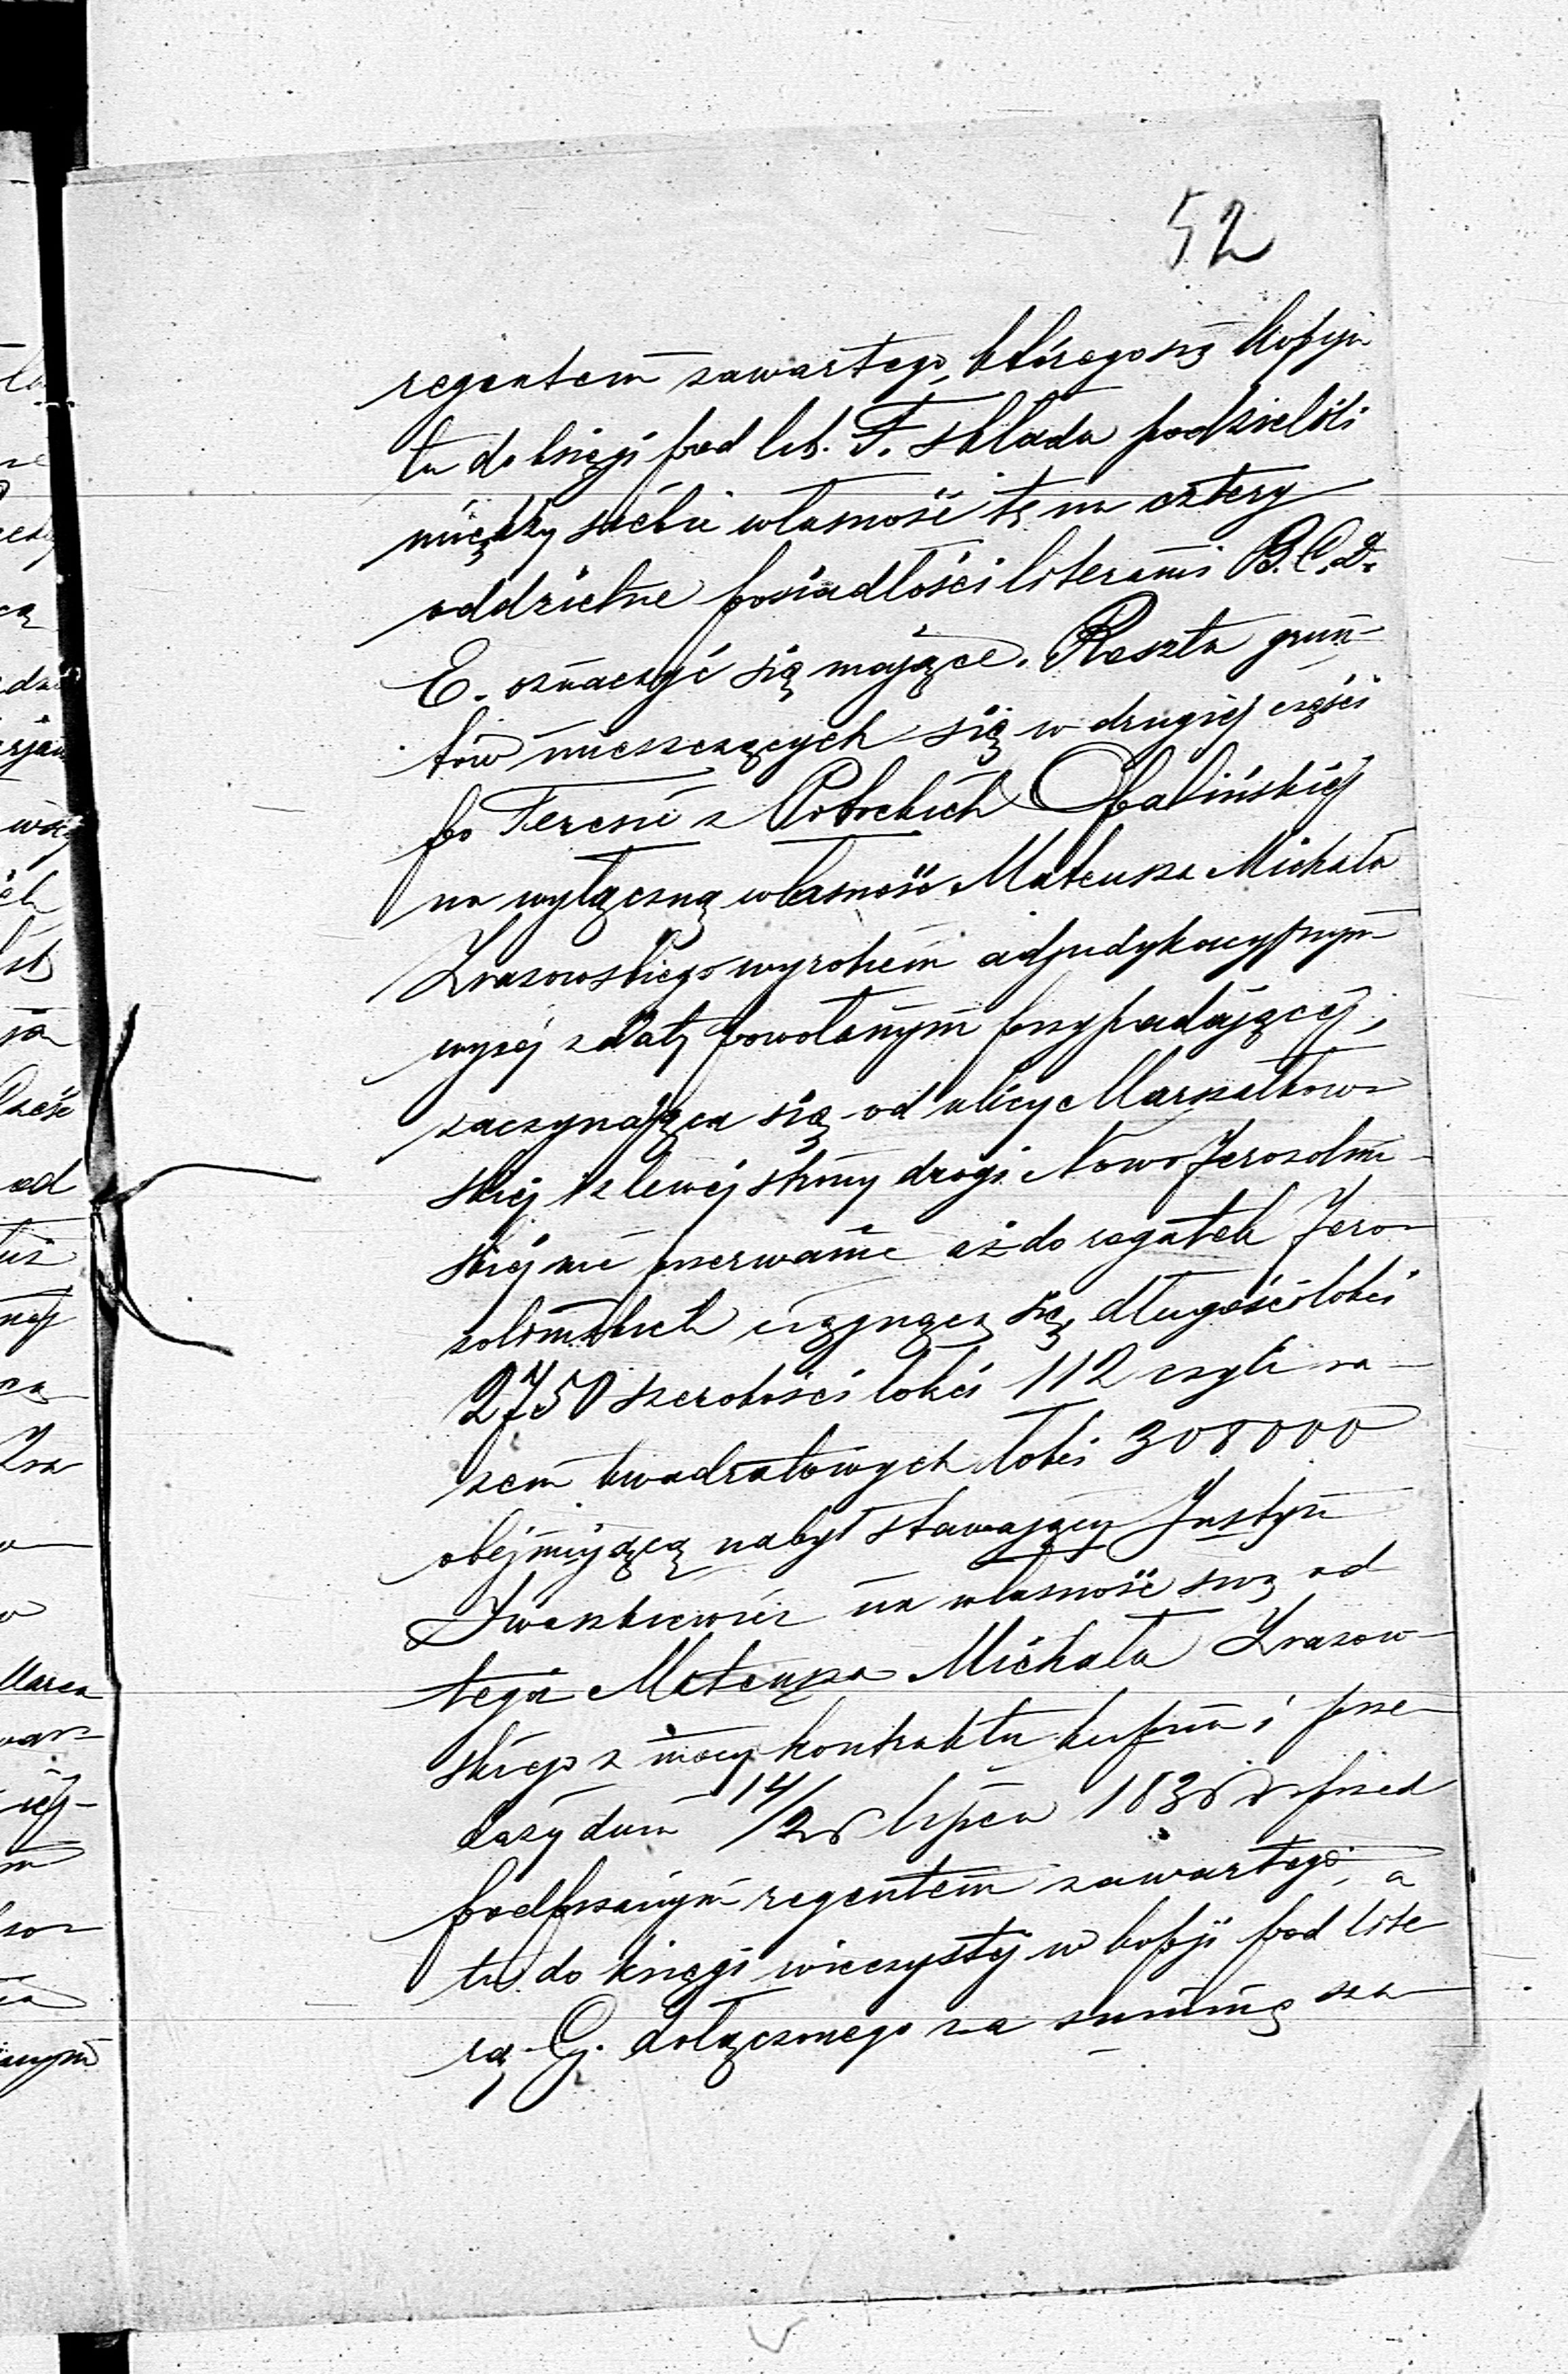 52
regentem zawartego, którego się kopija
tu do księgi pod lit. F. składa podzielili
między siebie własność tę na cztery
oddzielne posiadłości literami B. C. D.
E. oznaczyć się mające. Reszta grun-
tów mieszczących się w drugiej części
po Teresie z Potockich Opalińskiej
na wyłączną własność Mateusza Michała
Lrasowskiego wyrokiem adjudykacyjnym
wyżej z daty powołanym przypadającej,
zaczynająca się od ulicy Marszałkow-
skiej i z lewéj strony drogi Nowo Jerozolim-
skiej nie przerwanie aż do rogatek Jero-
zolimskich ciągnącą się, długości łokci
2750 szerokości łokci 112 czyli ra-
zem kwadratowych łokci 308000
obejmującą nabył stawający Justyn
Iwaszkiewicz na własność swą od
tegoż Mateusza Michała Lrasow-
skiego z mocy kontraktu kupna i prze-
daży dnia 14/26 lipca 1838 r. przed
podpisanym regentem zawartego, a
tu do księgi wieczystej w kopji pod lite
rą G. dołączonego za summę sza-